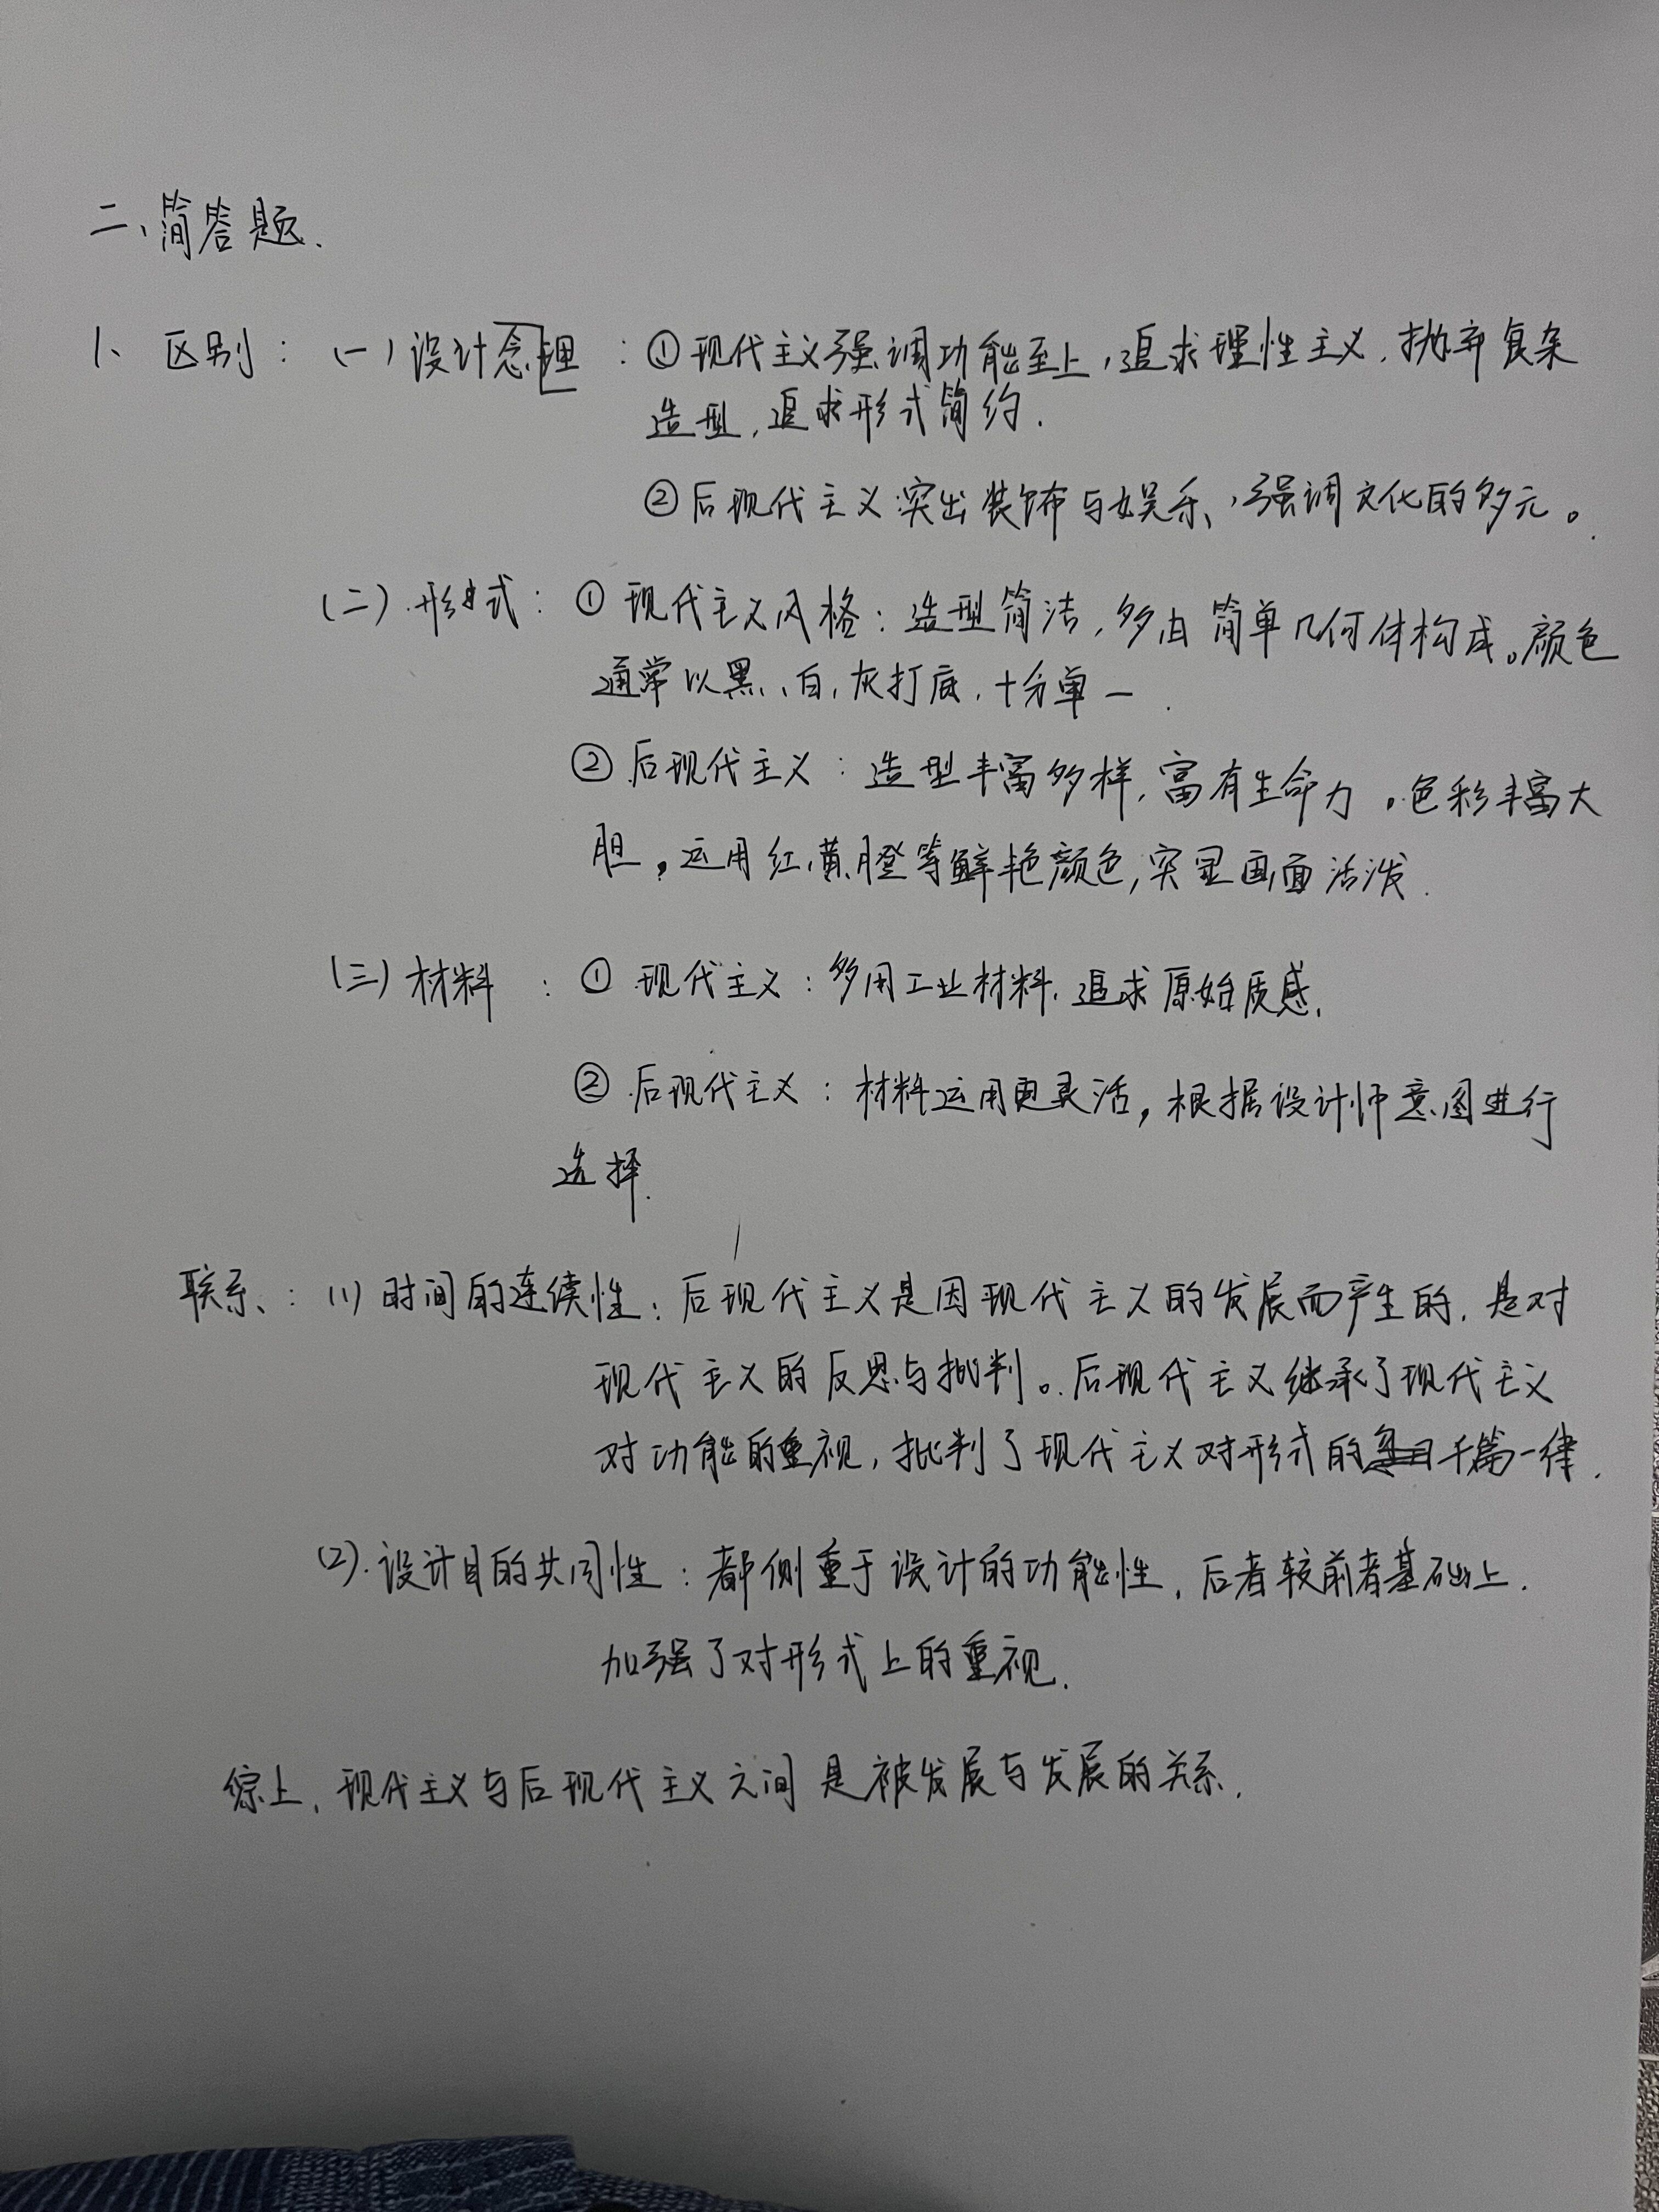 二、简答题.
1、区别：(一)设计念理：①现代主义强调功能至上，追求理性主义，抛弃复杂
造型，追求形式简约.
②后现代主义突出装饰与娱乐，强调文化的多元。
(二)形式：①现代主义风格：造型简洁，多由简单几何体构成。颜色
通常以黑、白、灰打底，十分单一.
②后现代主义：造型丰富多样，富有生命力。色彩丰富大
胆。运用红、黄、橙等鲜艳颜色，突显画面活泼.
(三)材料：①现代主义：多用工业材料，追求原始质感.
②后现代主义：材料运用更灵活，根据设计师意图进行
选择.
联系：(1)时间的连续性：后现代主义是因现代主义的发展而产生的，是对
现代主义的反思与批判。后现代主义继承了现代主义
对功能的重视，批判了现代主义对形式的千篇一律.
(2).设计目的共同性：都侧重于设计的功能性，后者较前者基础上.
加强了对形式上的重视.
综上，现代主义与后现代主义之间是被发展与发展的关系.